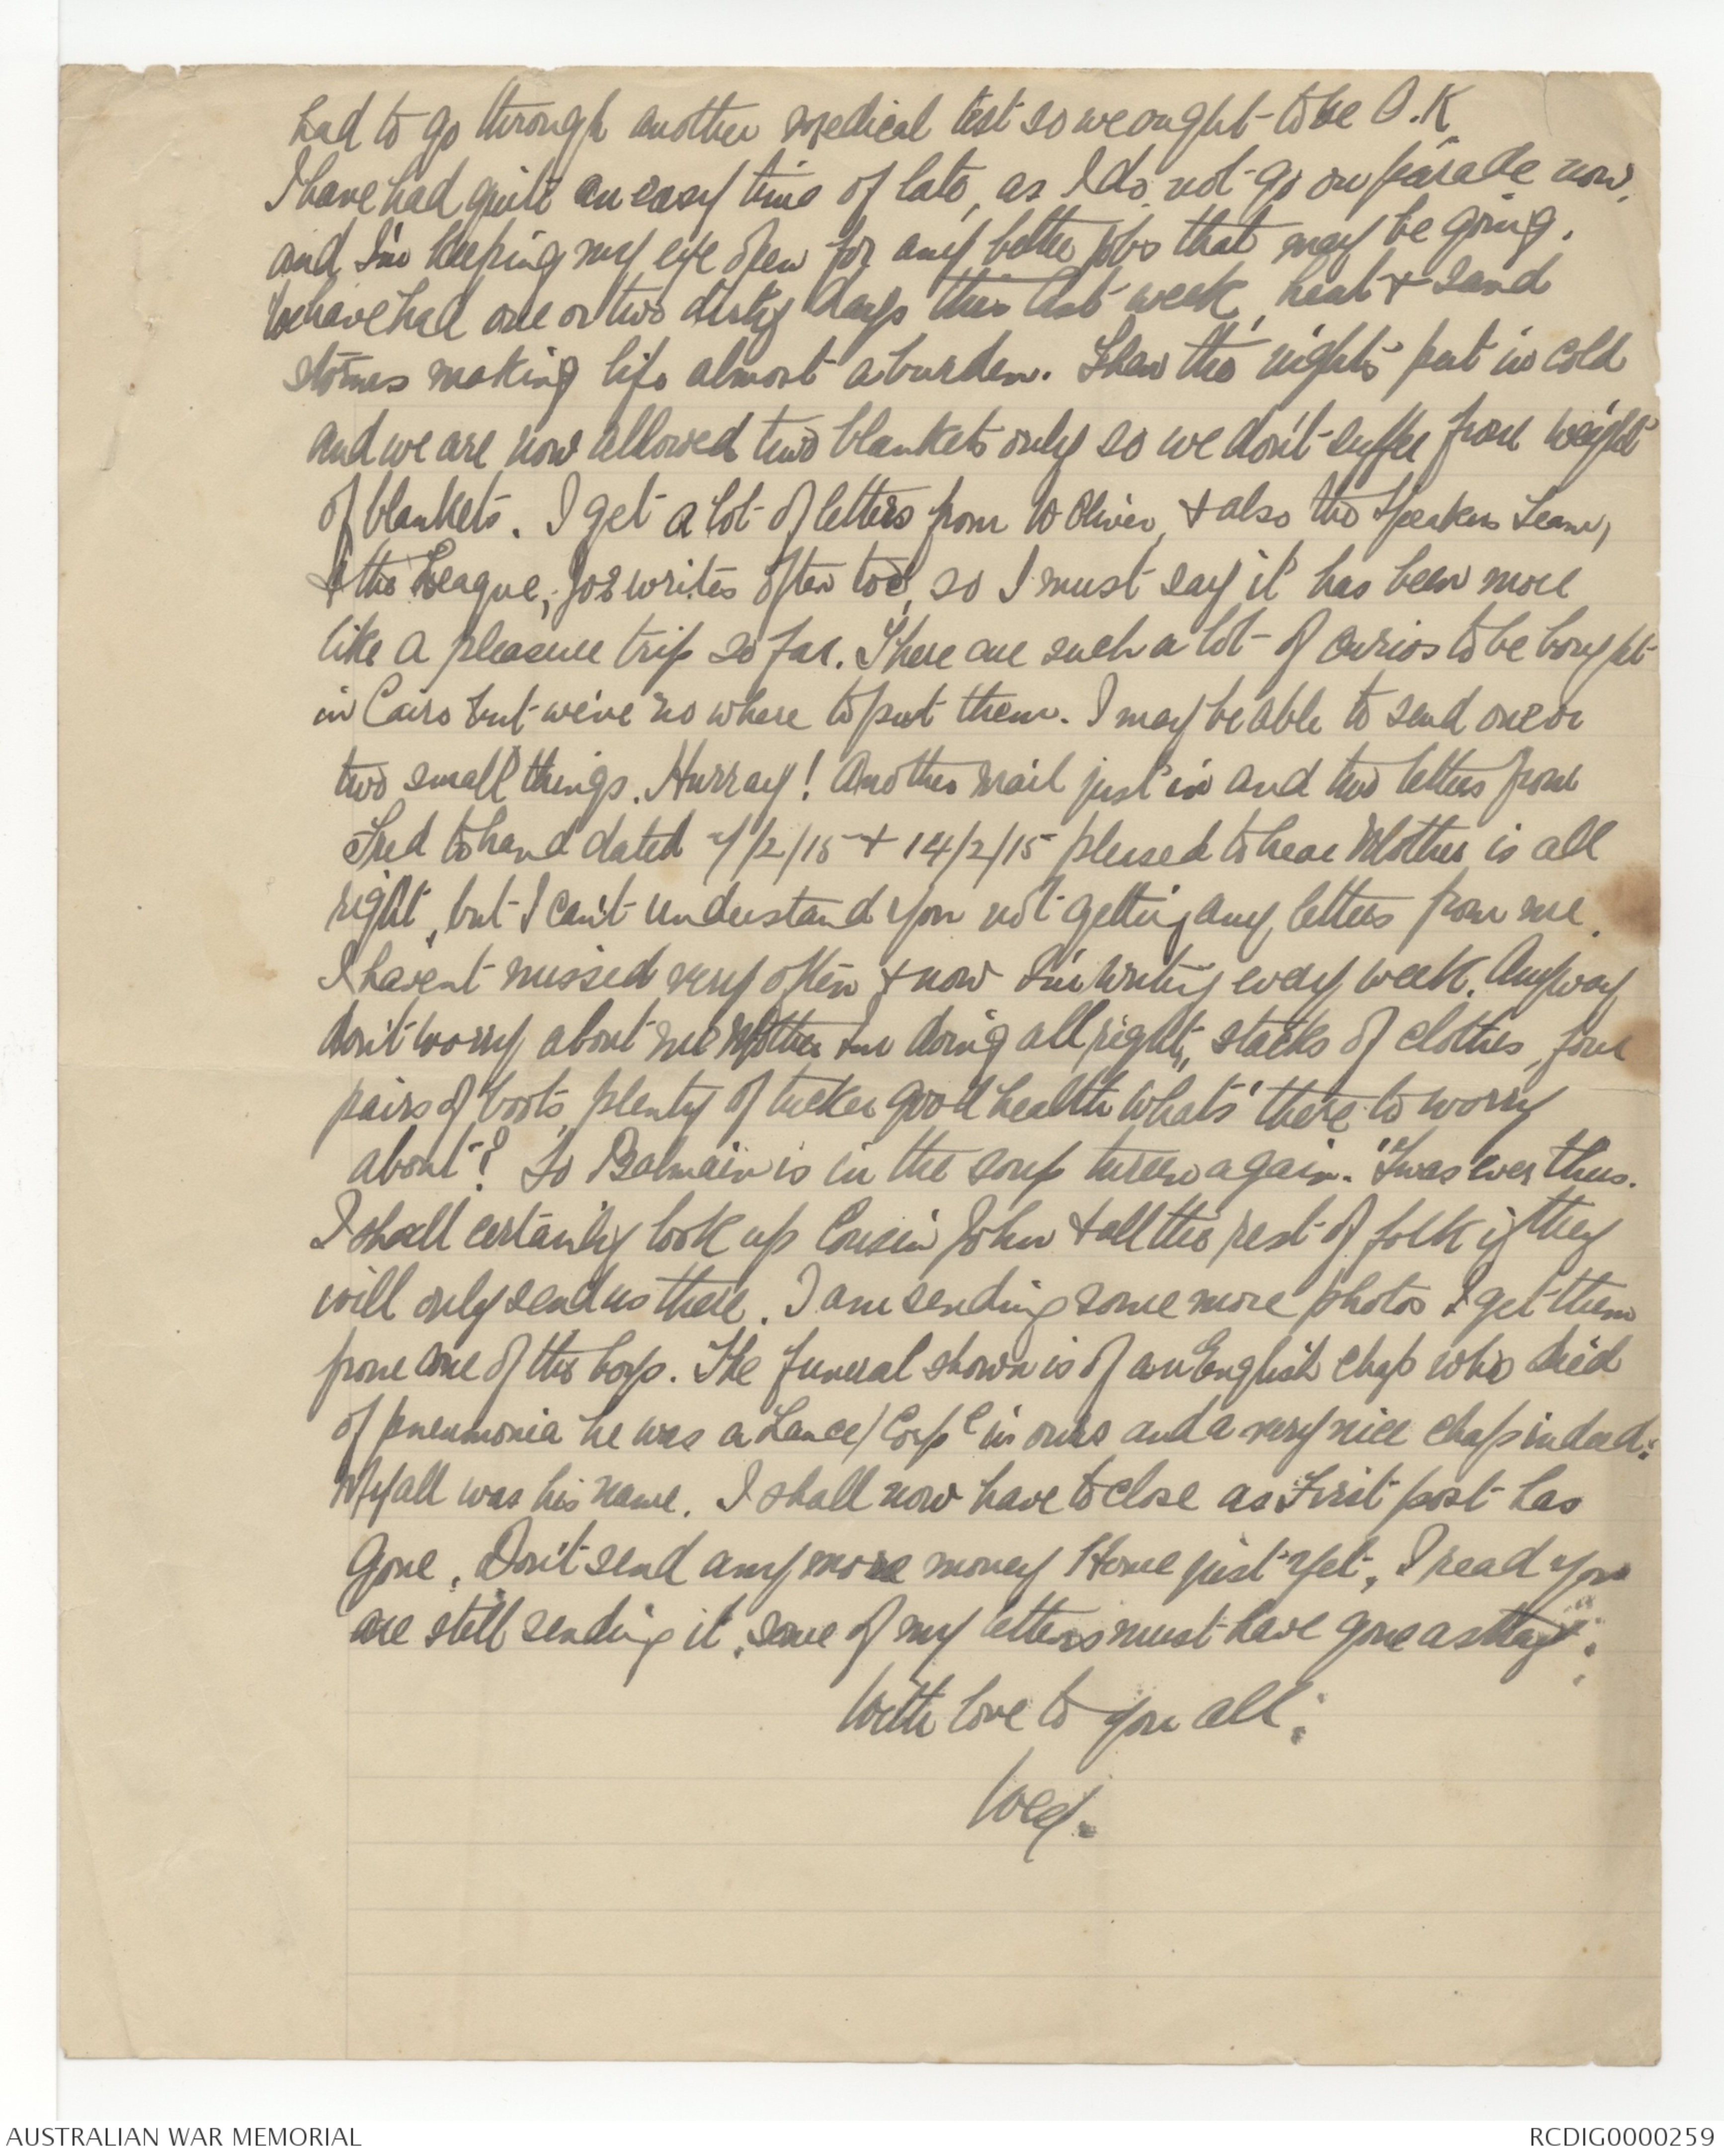 had to go through another medical test so we ought to be O.K
I have had quite an easy time of late, as I do not go on parade now,
and I'm keeping my eye open for any better jobs that may be going.
We have had one or two dirty days this last week, heat & sand
storms making life almost a burden. Then the nights put in cold
and we are now allowed two blankets only so we don't suffer from weight
of blankets. I get a lot of letters from W Oliver, & also the Speakers Team,
& the League, Joe writes often too, so I must say it has been more
like a pleasure trip so far. There are such a lot of curios to be bought
in Cairo but we've no where to put them. I may be able to send one or
two small things. Hurray! Another mail just in and two letters from
Fred to hand dated 7/2/15 & 14/2/15 pleased to hear Mother is all
right, but I can't understand you not getting any letters from me.
I havent missed very often & now I'm writing every week. Anyway
don't worry about me Mother I'm doing all right, stacks of clothes, four
pairs of boots, plenty of tucker good health whats there to worry
about? So Balmain is in the soup tureen again. 'Twas ever thus.
I shall certainly look up Cousin John & all the rest of folk if they
will only send us there. I am sending some more photos I get them
from one of the boys. The funeral shown is of an English chap who died
of pneumonia he was a Lance/Corpl in ours and a very nice chap indeed:
Myall was his name. I shall now have to close as First post has
gone. Don't send any more money Home just yet, I read you
are still sending it, some of my letters must have gone astray.
With love to you all.